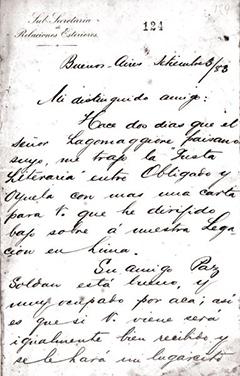 Sub-Secretaría
de
Relaciones Exteriores.
124
Buenos-Aires Setiembre 3/83
Mi distinguido amigo:
Hace dos dias que el
señor Lagomaggiore, paisano
suyo, me trajo la Justa
Literaria entre Obligado y
Oyuela con mas una carta
para ti que he dirijido
bajo sobre á nuestra Lega
cion en Lima.
Su amigo Paz
Soldan está bueno, y
muy ocupado por acá; así
es que si V. viene será
igualmente bien recibido, y
se le hará un lugarcito